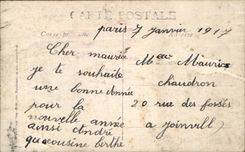 CARTE POSTALE
paris 7 janvier 1917
Cher maurice
je te souhaite
une bonne année
pour la
nouvelle année
ainsi André
qua cousine berthe
Maurice
chaudron
20 rue des fossés
a Joinville